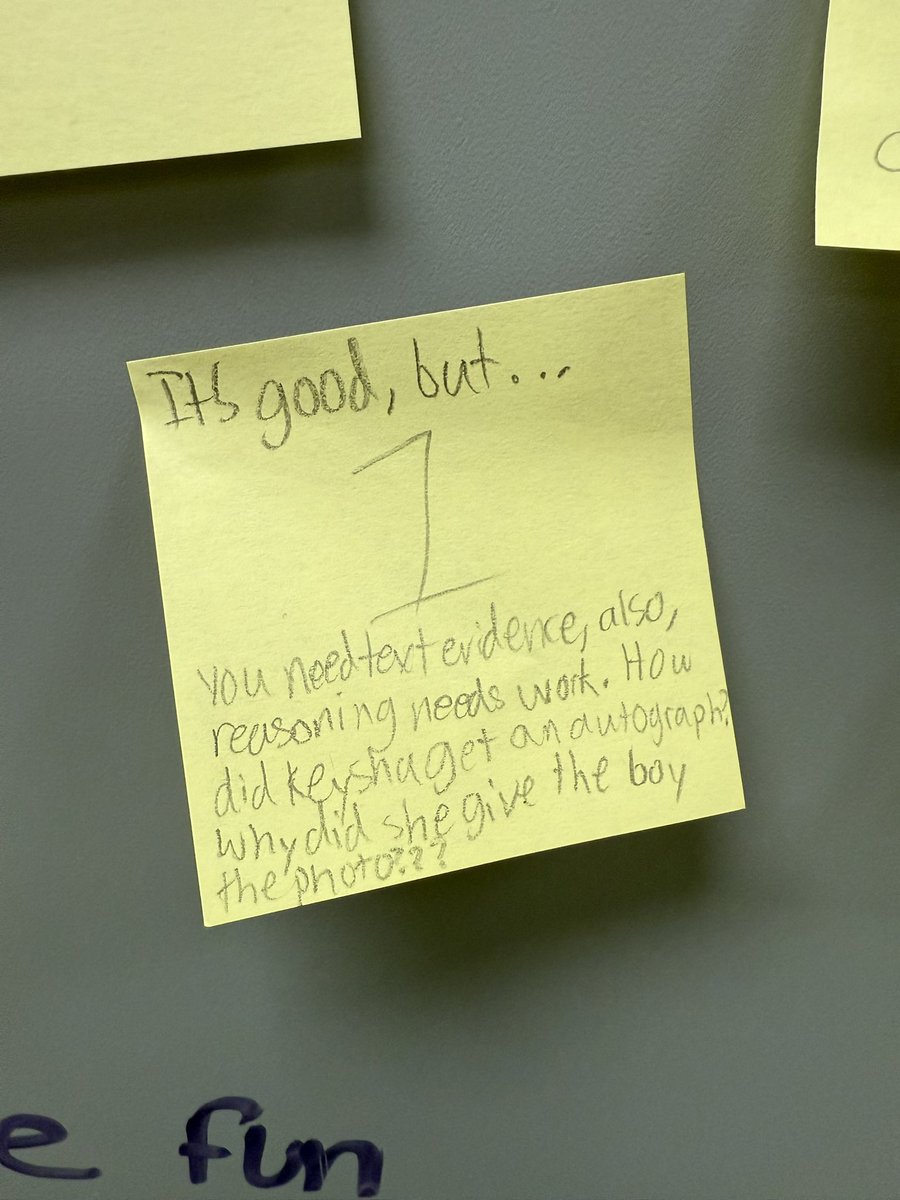 It's good, but...
1
You need text evidence, also,
reasoning needs work. How
did keysha get an autograph?
why did she give the boy
the photo???
e fun